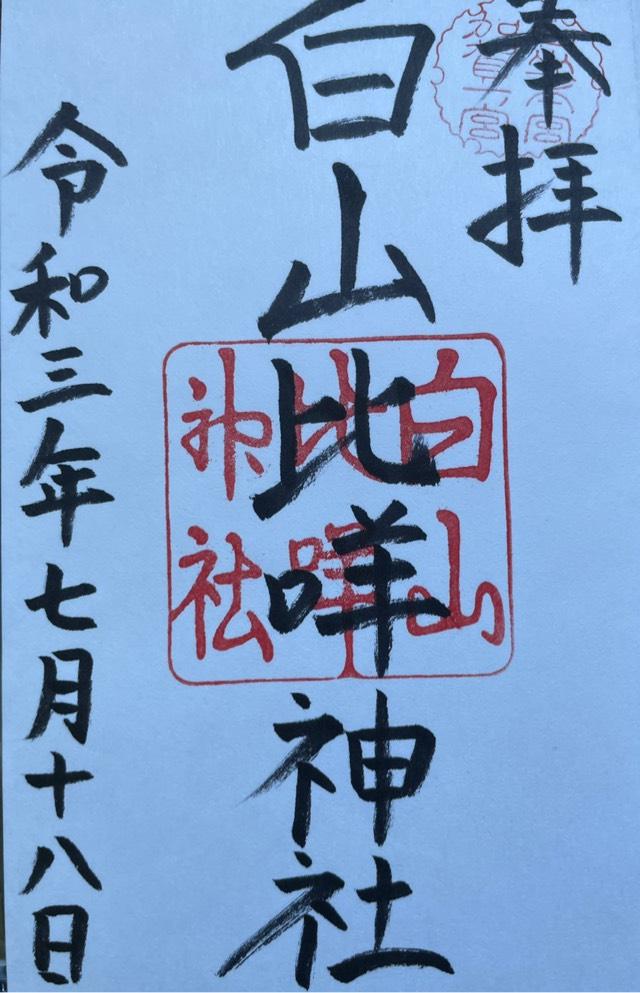 奉拝
白山比咩神社
令和三年七月十八日
白山
比咩
神社